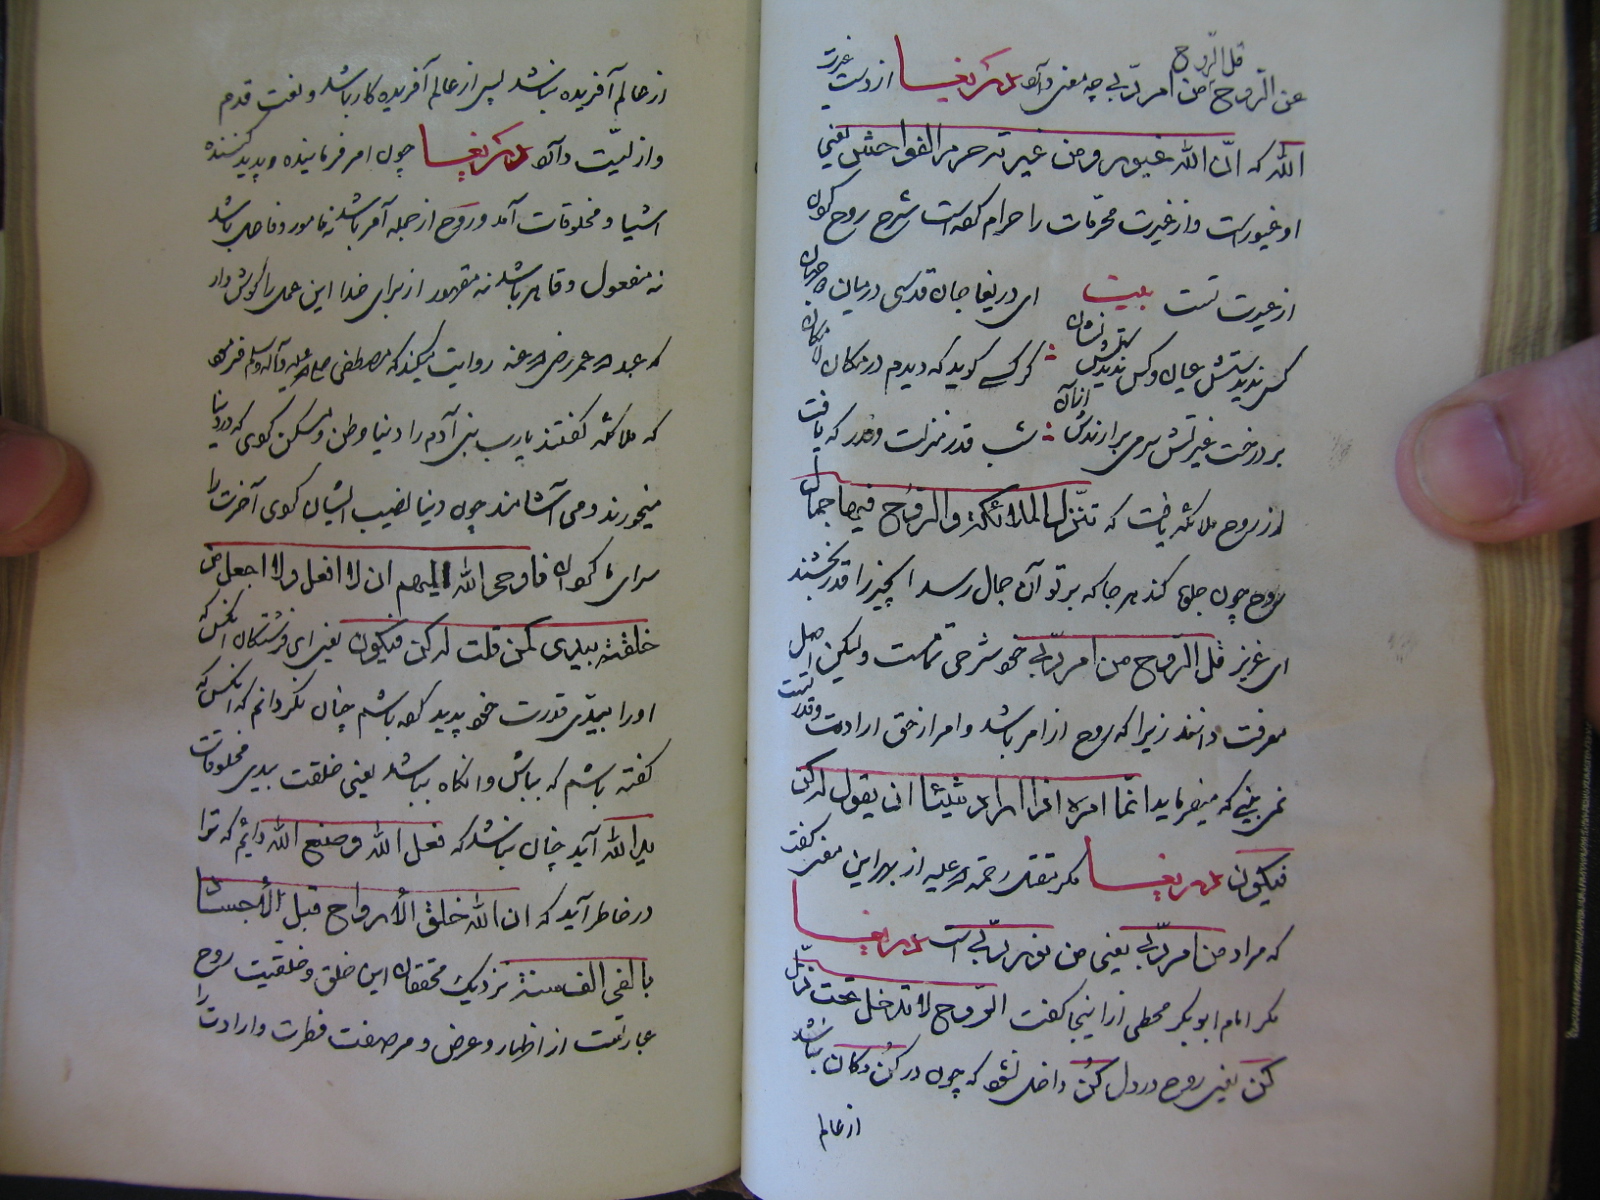 قل الرّوح
عن الرّوح من امر ربّی چه معنی دارد دریغا از دست غیرت
الله که انّ الله غیور و من غیرته حرم الفواحش یعنی
او غیور است و از غیرت محرّمات را حرام کرده است شرح روح کردن
از غیرت است بیت ای دریغا جان قدسی درمیان دو جهان
کس ندیدستش عیان و کس ندیدش کس نشان گر کسی گوید که دیدم در مکان لامکان
بر درخت غیرتش سر می برارندش از آن شب قدر منزلت و قدر که یافت
از روح ملائکه یافت که تنزل الملائکة والروح فیها جمال
روح چون جلوه کند هر جا که برتو آن جمال رسد آنچیز را قدر بخشند
ای عزیز قل الرّوح من امر ربّی خود شرحی تمامست ولیکن اهل
معرفت دانند زیرا که روح از امر باشد و امر از حق ارادت است و قدرت
نمی بینی که میفرماید انّما امره اذا اراد شیئا ان یقول له کن
فیکون دریغا مگر تقلی رحمة الله علیه از بهر این معنی گفت
که مراد من امر ربّی یعنی من نور ربّی است دریغا
مگر امام ابوبکر قحطی از اینجا گفت الرّوح لا تدخل تحت ذلّ
کن یعنی روح در ذل کُن داخل نشود که چون در کُن و کان نباشد
از عالم
از عالم آفریده نباشد پس از عالم آفریده کار باشد و نعت قدم
و ازلیّت دارد دریغا چون امر فرماینده و پدید کننده
اشیا و مخلوقات آمد و روح از جمله آمر باشد نه مامور و فاعل باشد
نه منفعول و قاهر باشد نه مقهور از برای خدا این عمل را گوش دار
که عبد الله عمر رضی الله عنه روایت میکند که مصطفی صلی الله علیه و آله و سلم فرمود
که ملائکه گفتند یارب بنی آدم را دنیا وطن و مسکن کردی که در دنیا
میخورند و می آشامند چون دنیا نصیب ایشان کردی آخرت را
سرای ما گردان فاوحی الله الیهم ان لا افعل و لا اجعل من
خلقته بیدی کمن قلت له کن فیکون یعنی ای فرشتگان آنکس که
او را بیدّی قدرت خود پدید کرده باشم چنان نگردانم که آنکس که
گفته باشم که بباش و آنگاه بباشد یعنی خلقت بیدی مخلوقات
یدا الله آید چنان نباشد که فعل الله و صنع الله دانم که ترا
در خاطر آید که ان الله خلق الأرواح قبل الأجساد
بالفی الف سنة نزدیک محققان این خلق و خلقیت روح را
عبارتست از اظهار و عرض و مر صفت فطرت و ارادت